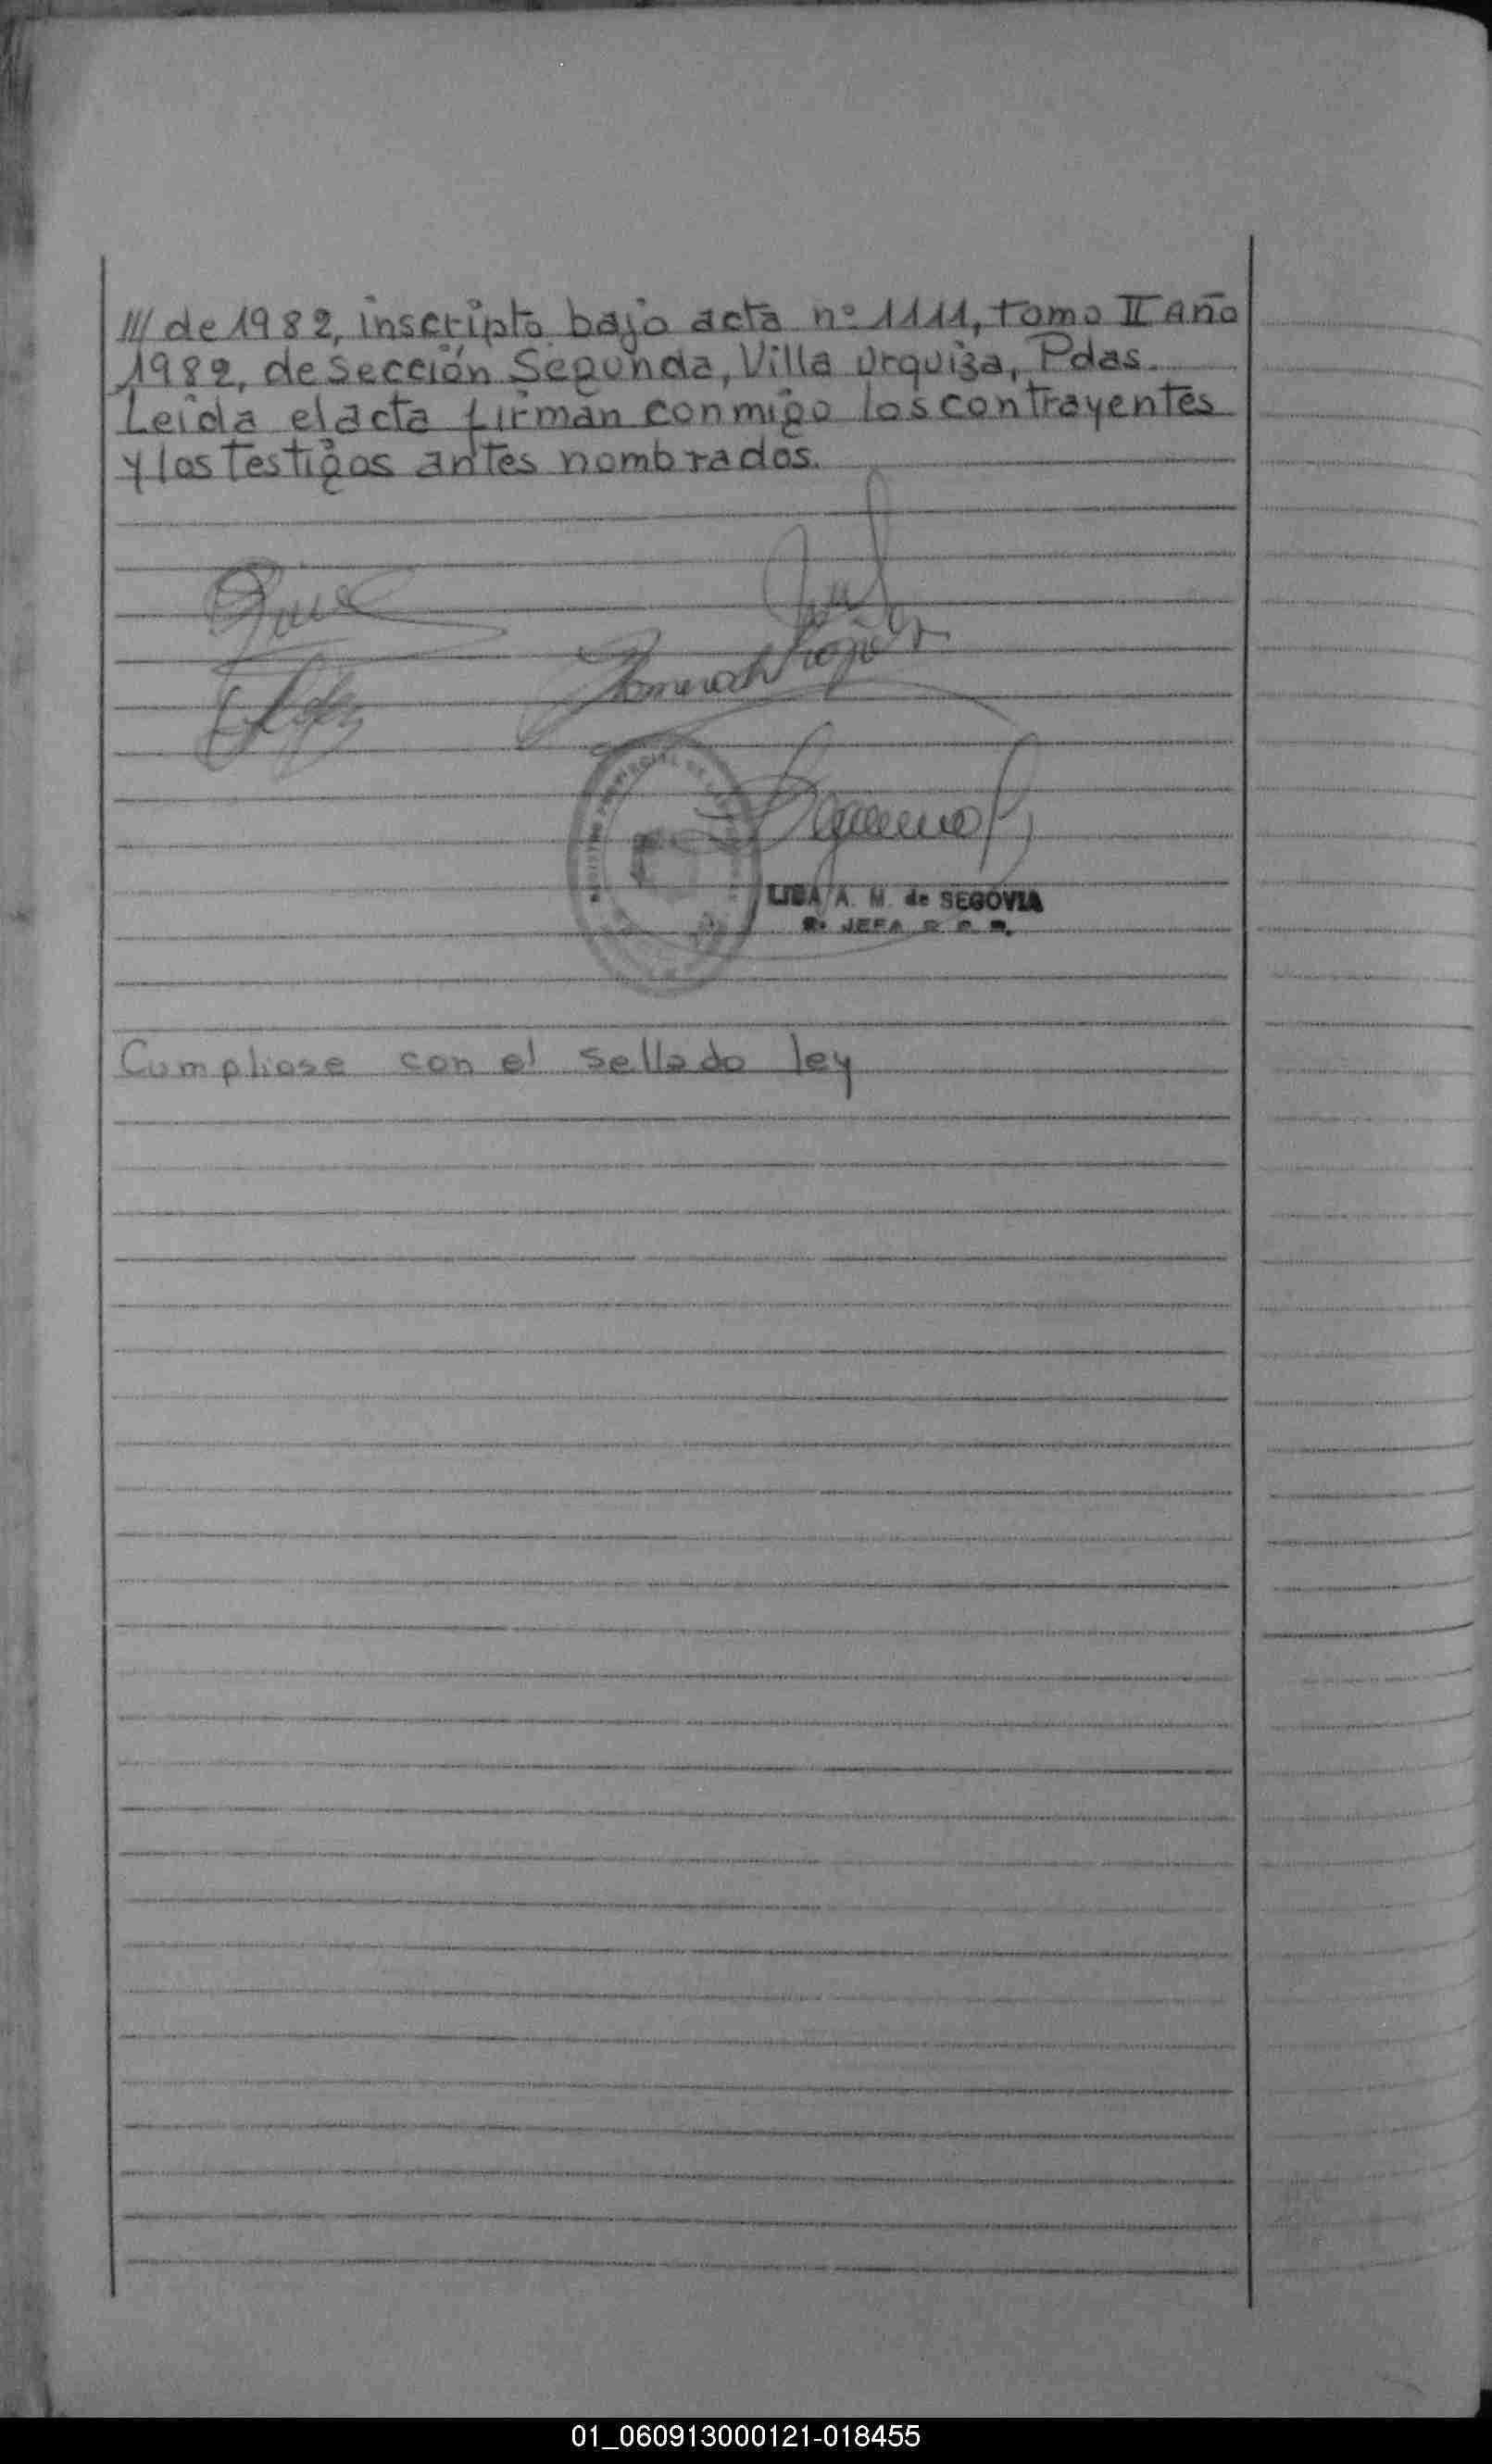 /// de 1982, inscripto bajo acta nº 1111, tomo II Año
1982, de Sección Segunda, Villa Urquiza, Pdas.
Leida el acta firman conmigo los contrayentes
y los testigos antes nombrados.
LISA A. M. de SEGOVIA
JEFA
Cumpliose con el sellado ley
01_060913000121-018455